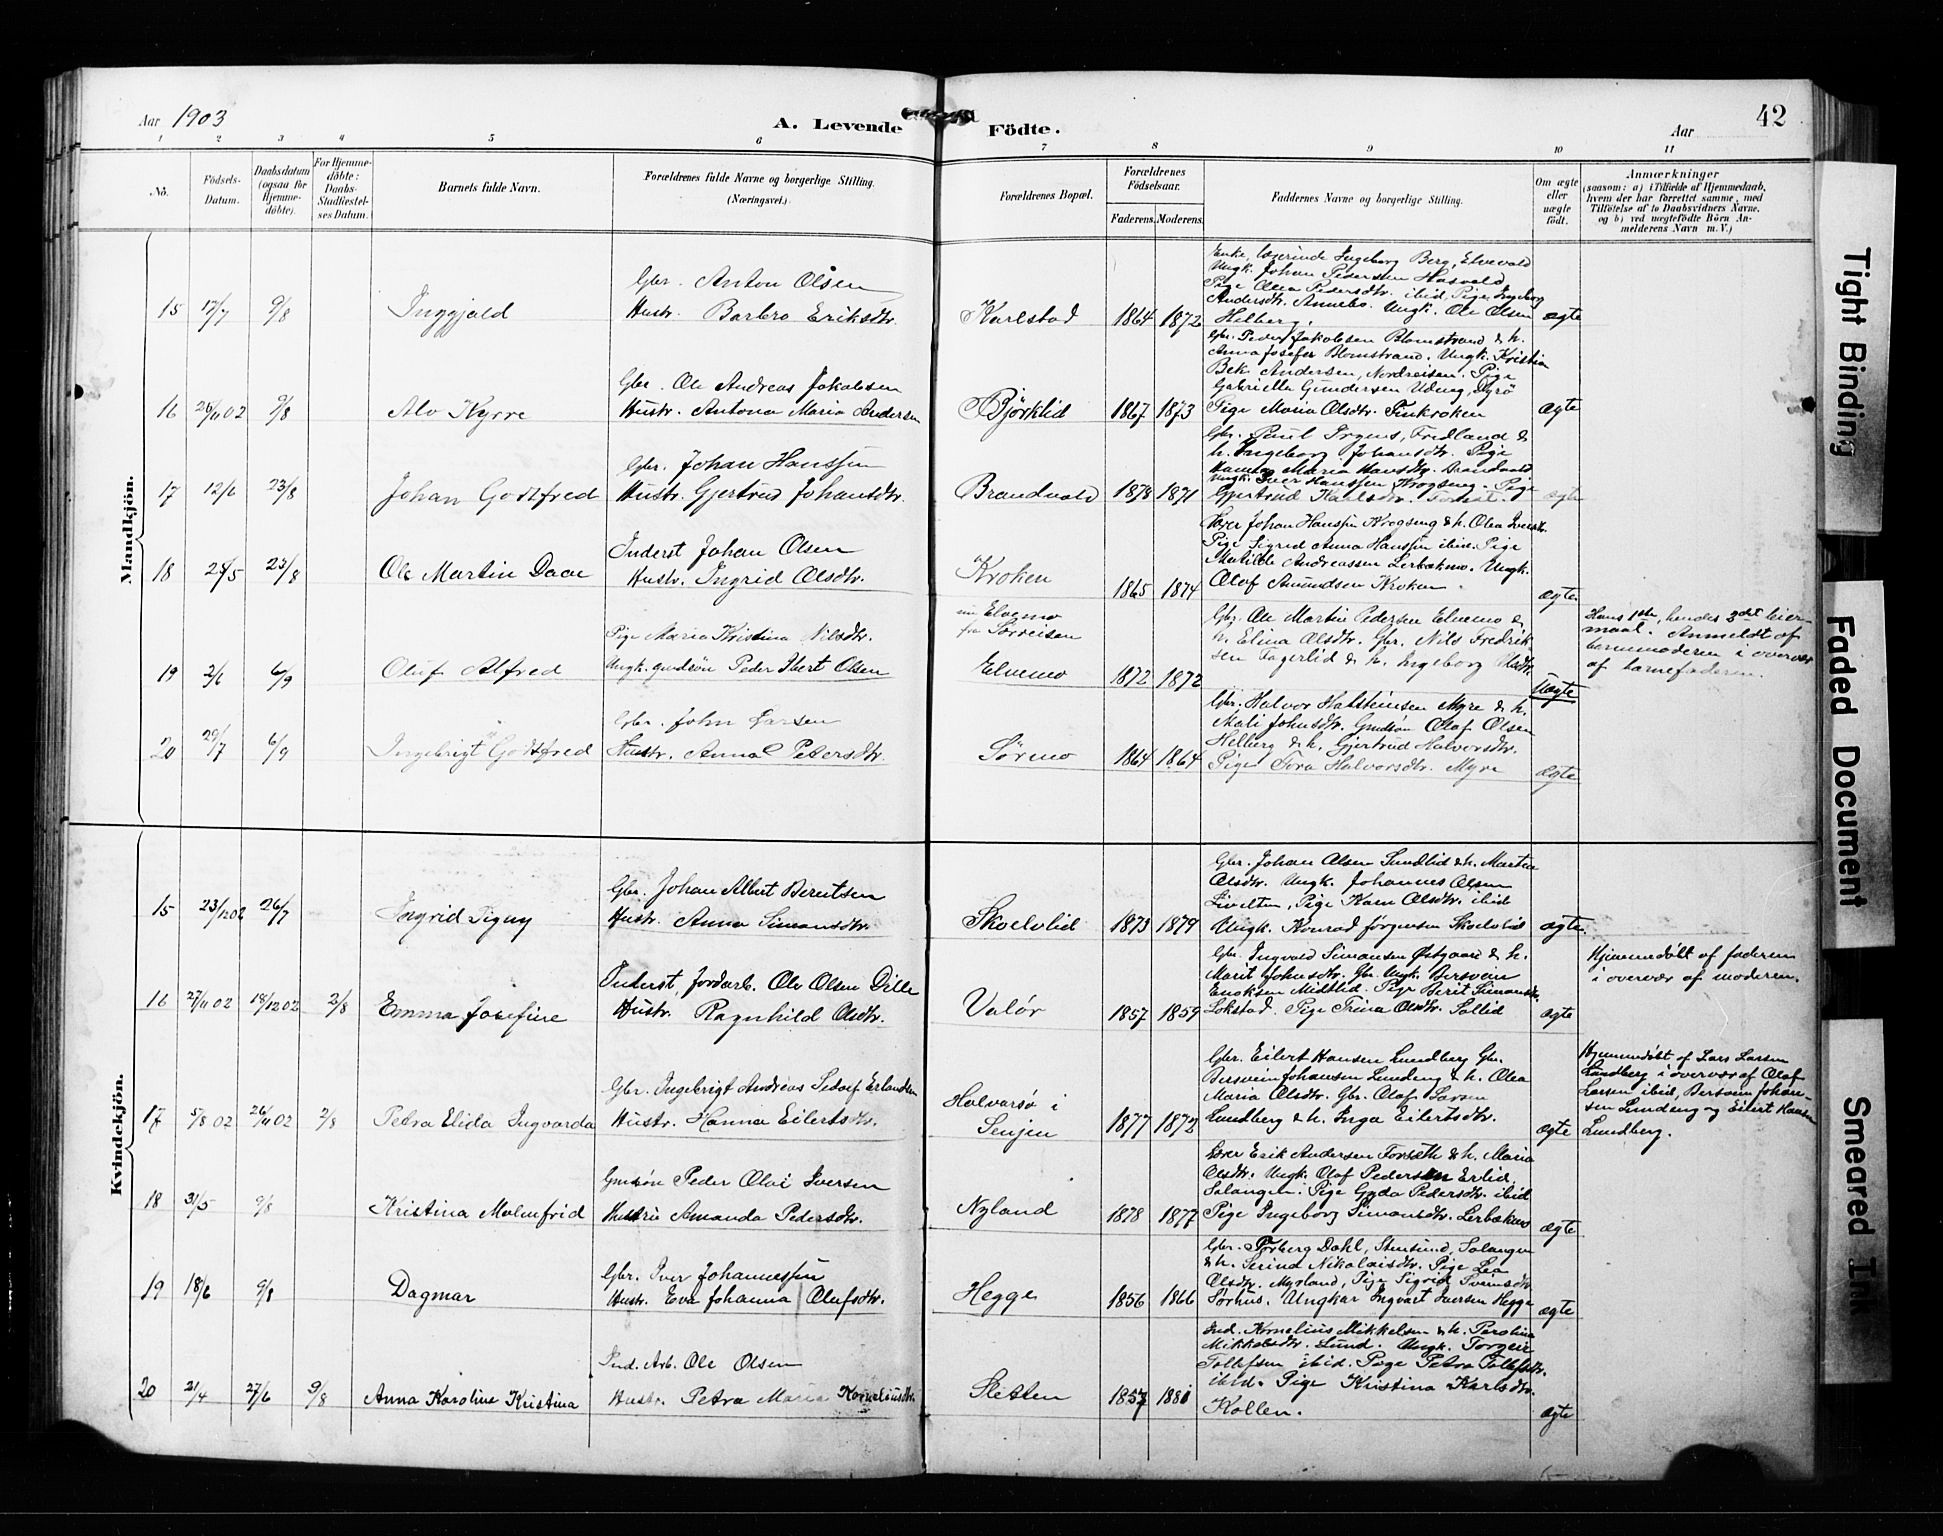 Aar 1903
A. Levende Födte.
Aar
42
1 2 3 4 5 6 7 8 9 10 11
No.
Födsels-
Datum.
Daabsdatum
(ogsaa for
Hjemme-
döbte).
For Hjemme-
döbte:
Daabs-
Stadfæstel-
ses Datum.
Barnets fulde Navn.
Forældrenes fulde Navne og borgerlige Stilling.
(Næringsvei.)
Forældrenes Bopæl.
Forældrenes
Födselsaar.
Faderens. Moderens.
Faddernes Navne og borgerlige Stilling.
Om ægte
eller
uægte
födt.
Anmærkninger
(saasom: a) i Tilfælde af Hjemmedaab,
hvem der har forrettet samme, med
Tilföielse af to Daabsvidners Navne,
og b) ved uægtefödte Börn An-
melderens Navn m. V.)
Mandkjön.
15 17/7 9/8 Inggjald
Gbr. Anton Olsen
Hustr. Barbro Eriksdtr.
Karlstad 1864 1872
Enke, Ingeborg Berg, Elvevold
Ungk. Johan Pedersen Hasvold
Pige Olea Pedersdtr. ibid, Pige Ingeborg
Andersdtr. Annebo. Ungk. Ole Olsen
Helberg.
ægte
16 26/11 02 9/8 Alv Kyrre
Gbr. Ole Andreas Jakobsen
Hustr. Antona Maria Andersen
Björklid 1867 1873
Gbr. Peder Jakobsen Blomstrand & h.
Anna Josefa Blomstrand. Ungk. Kristian
Bek Andersen, Nordreisen. Pige
Gabriella Gundersen Dyrö
Pige Maria Olsdtr. Finkroken
ægte
17 12/6 23/8 Johan Godtfred
Gbr. Johan Hanssen
Hustr. Gjertrud Johansdtr.
Brandvold 1878 1871
Gbr. Paul Irgens, Fredland &
h. Ingeborg Johansdtr. Pige
Maria Hansdtr. Brandvold
Ungk. Iver Hanssen Krogseng. Pige
Gjertrud Karlsdtr.
ægte
18 28/5 23/8 Ole Martin Daae
Inderst Johan Olsen
Hustr. Ingrid Olsdtr.
Kroken 1865 1874
Johan Hanssen Krogseng & h. Olea
Pige Sigrid Anna Hanssen ibid. Pige
Matilde Andreassen Lerbækmo. Ungk.
Olaf Amundsen Kroken
ægte
19 2/6 6/9 Oluf Alfred
Pige Maria Kristina Nilsdtr.
Ungk. gaardsön Peder Ibert Olsen
nu Elvemo
fra Sörreisen
Elvemo 1872 1872
Gbr. Ole Martin Pedersen Elvemo &
h. Elina Olsdtr. Gbr. Nils Fredrik-
sen Fagerlid & h. Ingeborg Olsdtr.
Uægte
Hans 1ste, hendes 3det leier-
maal. Anmeldt af
barnemoderen i overvær
af barnefaderen.
20 29/7 6/9 Ingebrigt Godtfred
Gbr. John Larsen
Hustr. Anna Petersdtr.
Sörmo 1864 1864
Gbr. Halvor Halsteinsen Myre & h.
Mali Johnsdtr. Gaardsön Olaf Olsen
Helberg & h. Gjertrud Halvorsdtr.
Pige Tora Halvorsdtr. Myre
ægte
Kvindekjön.
15 23/12 02 26/7 Ingrid Signy
Gbr. Johan Albert Berntsen
Hustr. Anna Simonsdtr.
Skoelvlid 1873 1879
Gbr. Johan Olsen Sundlid & h. Martea
Olsdtr. Ungk. Johannes Olsen
Pige Karn Olsdtr. ibid
Ungk. Konrad Jörgensen Skoelvlid
ægte.
16 27/11 02 18/12 02 2/8 Emma Josefine
Inderst, Jordarb. Ole Olsen Dille
Hustr. Ragnhild Olsdtr.
Valör 1857 1859
Gbr. Ingvald Simonsen Östgaard & h.
Marit Johnsdtr. Gbr. Ungk. Bersvein
Enoksen Midtlid. Pige Berit Simonsdtr.
Lokstad. Pige Trina Olsdtr. Sollid
ægte
Hjemmedöbt af faderen
i overvær af moderen.
17 5/8 02 26/11 02 2/8 Petra Elida Ingvarda
Gbr. Ingebrigt Andreas Sedolf Erlandsen
Hustr. Hanna Eilertsdtr.
Halvarsö i
Senjen 1877 1872
Gbr. Eilert Hansen Lundberg Gbr.
Bersvein Johansen Lundeng & h. Olea
Maria Olsdtr. Gbr. Olaf Larsen
Lundberg & h. Inga Eilertsdtr.
ægte
Hjemmedöbt af Lars Larsen
Lundberg i overvær af Olaf
Larsen ibid, Bersvein Johan-
sen Lundeng og Eilert Hansen
Lundberg.
18 31/5 9/8 Kristina Malmfrid
Gaardsön Peder Olai Iversen
Hustru Amanda Pedersdtr.
Nyland 1878 1877
Erik Andersen Forseth & h. Maria
Olsdtr. Ungk. Olaf Pedersen Evlid,
Salangen. Pige Gyda Pedersdtr. ibid
Pige Ingeborg Simonsdtr. Lerbækmo
ægte
19 18/6 9/8 Dagmar
Gbr. Iver Johannessen
Hustr. Eva Johanna Olufsdtr.
Hegge 1856 1866
Gbr. Torberg Dahl, Stensund, Salangen
& h. Serina Nikolaisdtr. Pige Lea
Olsdtr. Myrland, Pige Sigrid Svensdtr.
Sörhus. Ungkar Ingvart Iversen Hegge
ægte
20 21/4 27/6 9/8 Anna Karoline Kristina
Ind. Arb. Ole Olsen
Hustr. Petra Maria Korneliusdtr.
Sletten 1857 1881
Ind. Kornelius Mikkelsen & h. Perolina
Mikkelsdtr. Lund. Ungk. Torgeir
Tollefsen ibid. Pige Petra Tollefsdtr.
ibid. Pige Kristina Karlsdtr.
Kollen.
ægte
Tight Binding
Faded Document
Smeared Ink